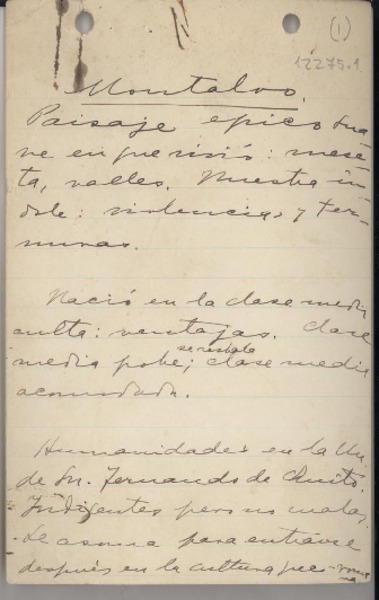 (1)
12275.1
Montalvo.
Paisaje épico sua-
ve en que vivió: mese-
ta, valles. Nuestra ín-
dole: violencias y ter-
nuras.
Nació en la clase media
culta: ventajas. Clase
se resbala
media pobe; clase media
acomodada.
Humanidades en la Un.
de Sn. Fernando de Quito.
Indigentes pero no malas.
Se asoma para entrarse
después en la cultura